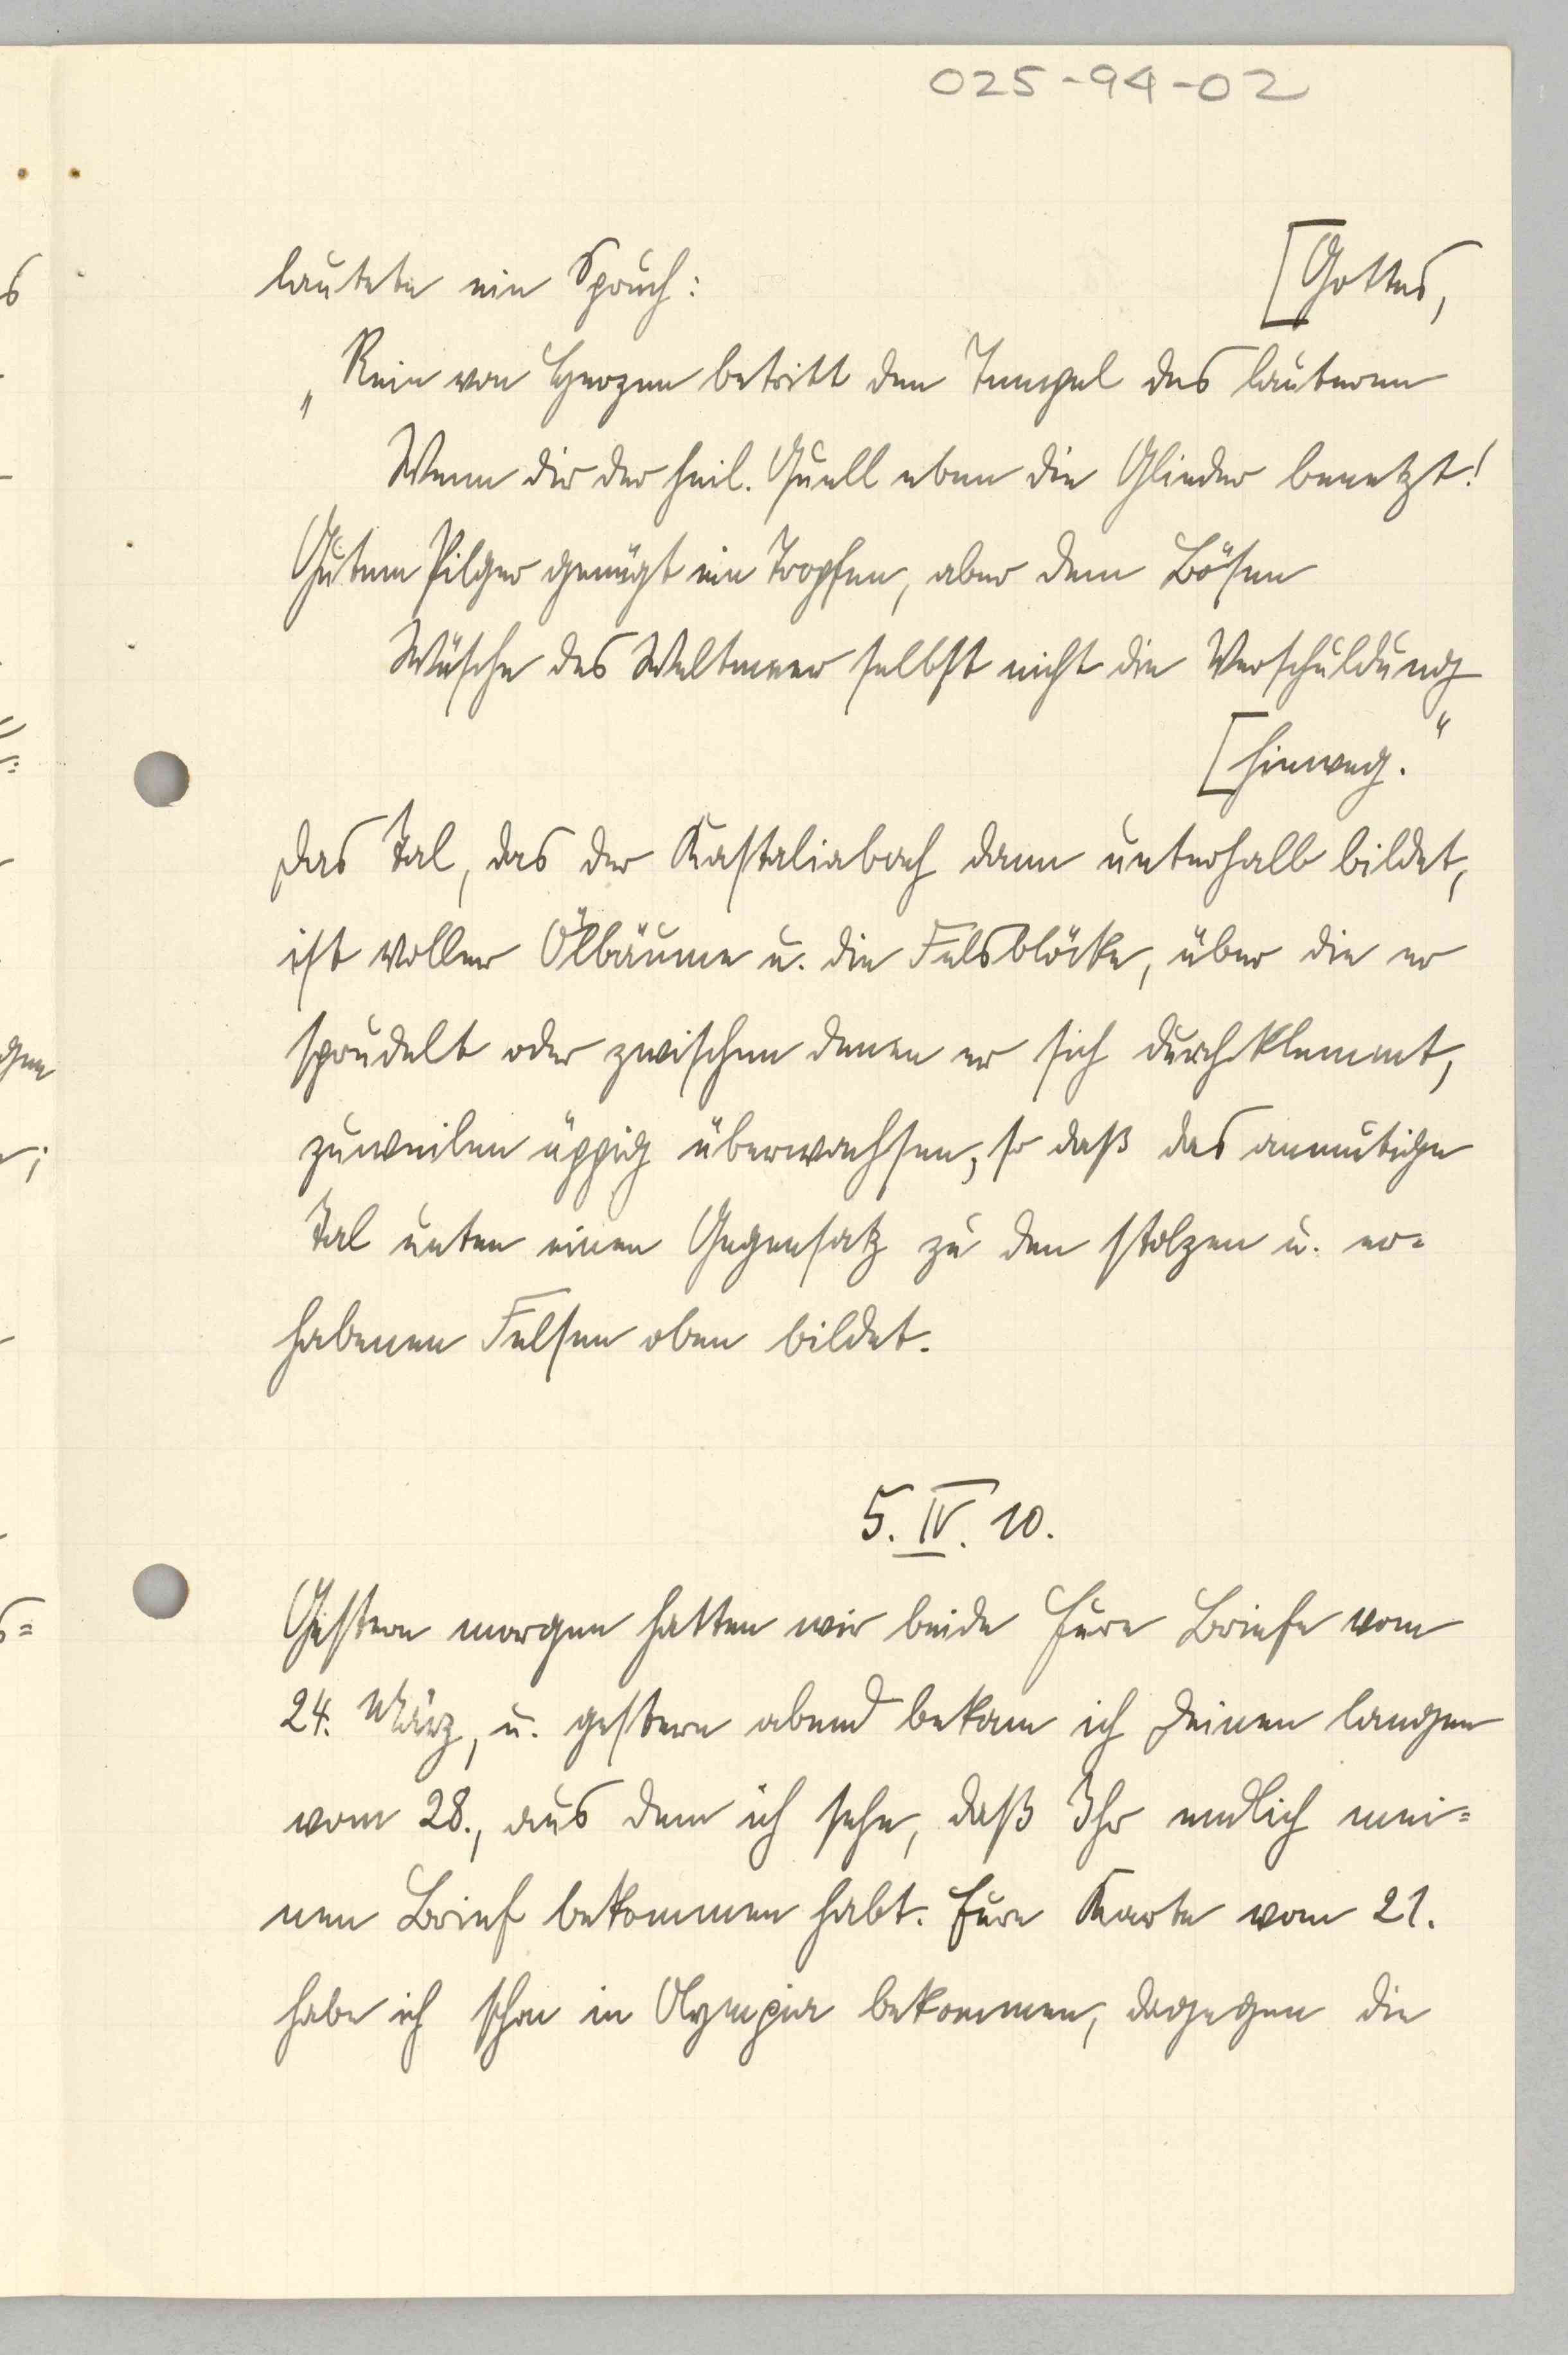 025-94-02
lautete ein Spruch: [Gottes,
„Rein von Herzen betritt den Tempel des lauteren
Wenn dir der heil. Quell eben die Glieder benetzt!
Gutem Pilger genügt ein Tropfen, aber dem Bösen
Wüsche das Weltmeer selbst nicht die Verschuldung
[hinweg.“
Das Tal, das der Kastaliabach dann unterhalb bildet,
ist voller Ölbäume u. die Felsblöcke, über die er
sprudelt oder zwischen denen er sich durchklemmt,
zuweilen üppig überwachsen, so daß das anmutige
Tal unten einen Gegensatz zu den stolzen u. er=
habenen Felsen oben bildet.
5. IV. 10.
Gestern morgen hatten wir beide Eure Briefe vom
24. März, u. gestern abend bekam ich Deinen langen
vom 28., aus dem ich sehe, daß Ihr endlich mei=
nen Brief bekommen habt. Eure Karte vom 21.
habe ich schon in Olympia bekommen, dagegen die